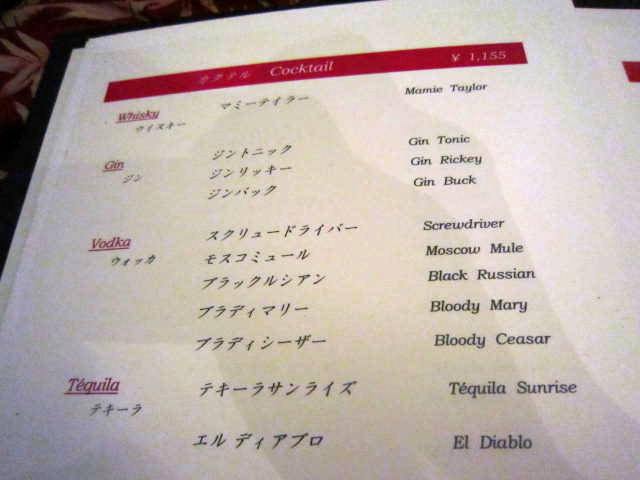 カクテル Cocktail ¥ 1,155
Whisky マミーテイラー Mamie Taylor
ウイスキー
Gin ジントニック Gin Tonic
ジン ジンリッキー Gin Rickey
ジンバック Gin Buck
Vodka スクリュードライバー Screwdriver
ウォッカ モスコミュール Moscow Mule
ブラックルシアン Black Russian
ブラディマリー Bloody Mary
ブラディシーザー Bloody Ceasar
Téquila テキーラサンライズ Téquila Sunrise
テキーラ
エル ディアブロ El Diablo